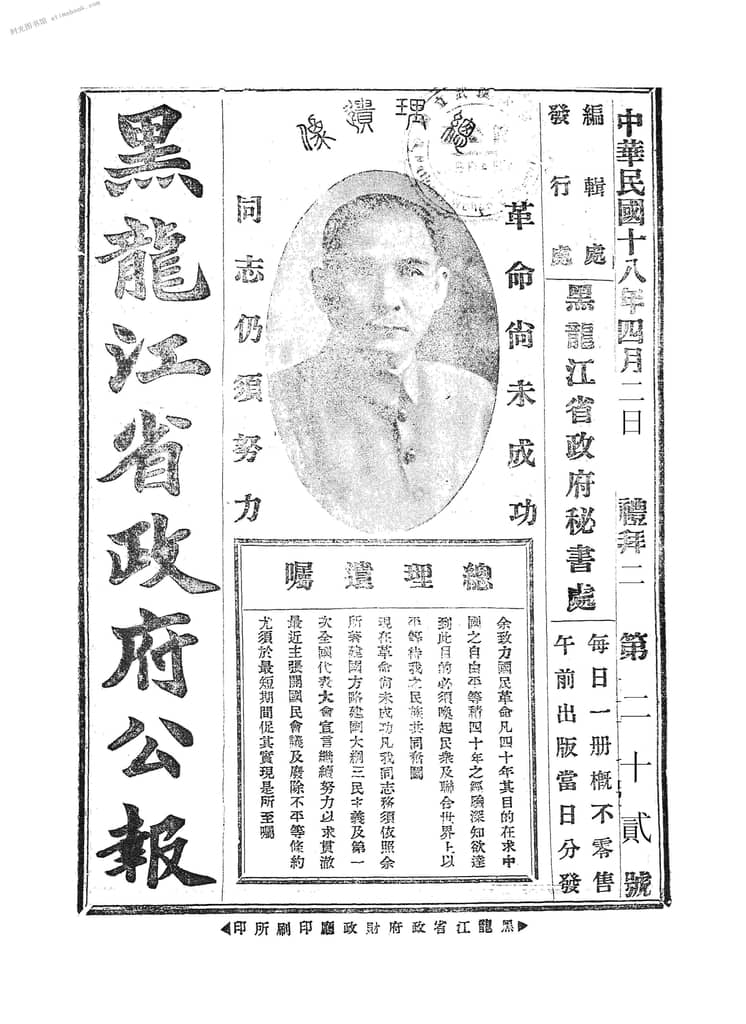 时光图书馆 stimebook.com
中華民國十八年四月二日 禮拜二 第二十貳號
編輯處
發行處
黑龍江省政府秘書處
每日一册概不零售
午前出版當日分發
總理遺像
革命尙未成功
同志仍須努力
總理遺囑
余致力國民革命凡四十年其目的在求中
國之自由平等積四十年之經驗深知欲達
到此目的必須喚起民衆及聯合世界上以
平等待我之民族共同奮鬭
現在革命尙未成功凡我同志務須依照余
所著建國方略建國大綱三民主義及第一
次全國代表大會宣言繼續努力以求貫澈
最近主張開國民會議及廢除不平等條約
尤須於最短期間促其實現是所至囑
黑龍江省政府公報
黑龍江省政府財政廳印刷所印